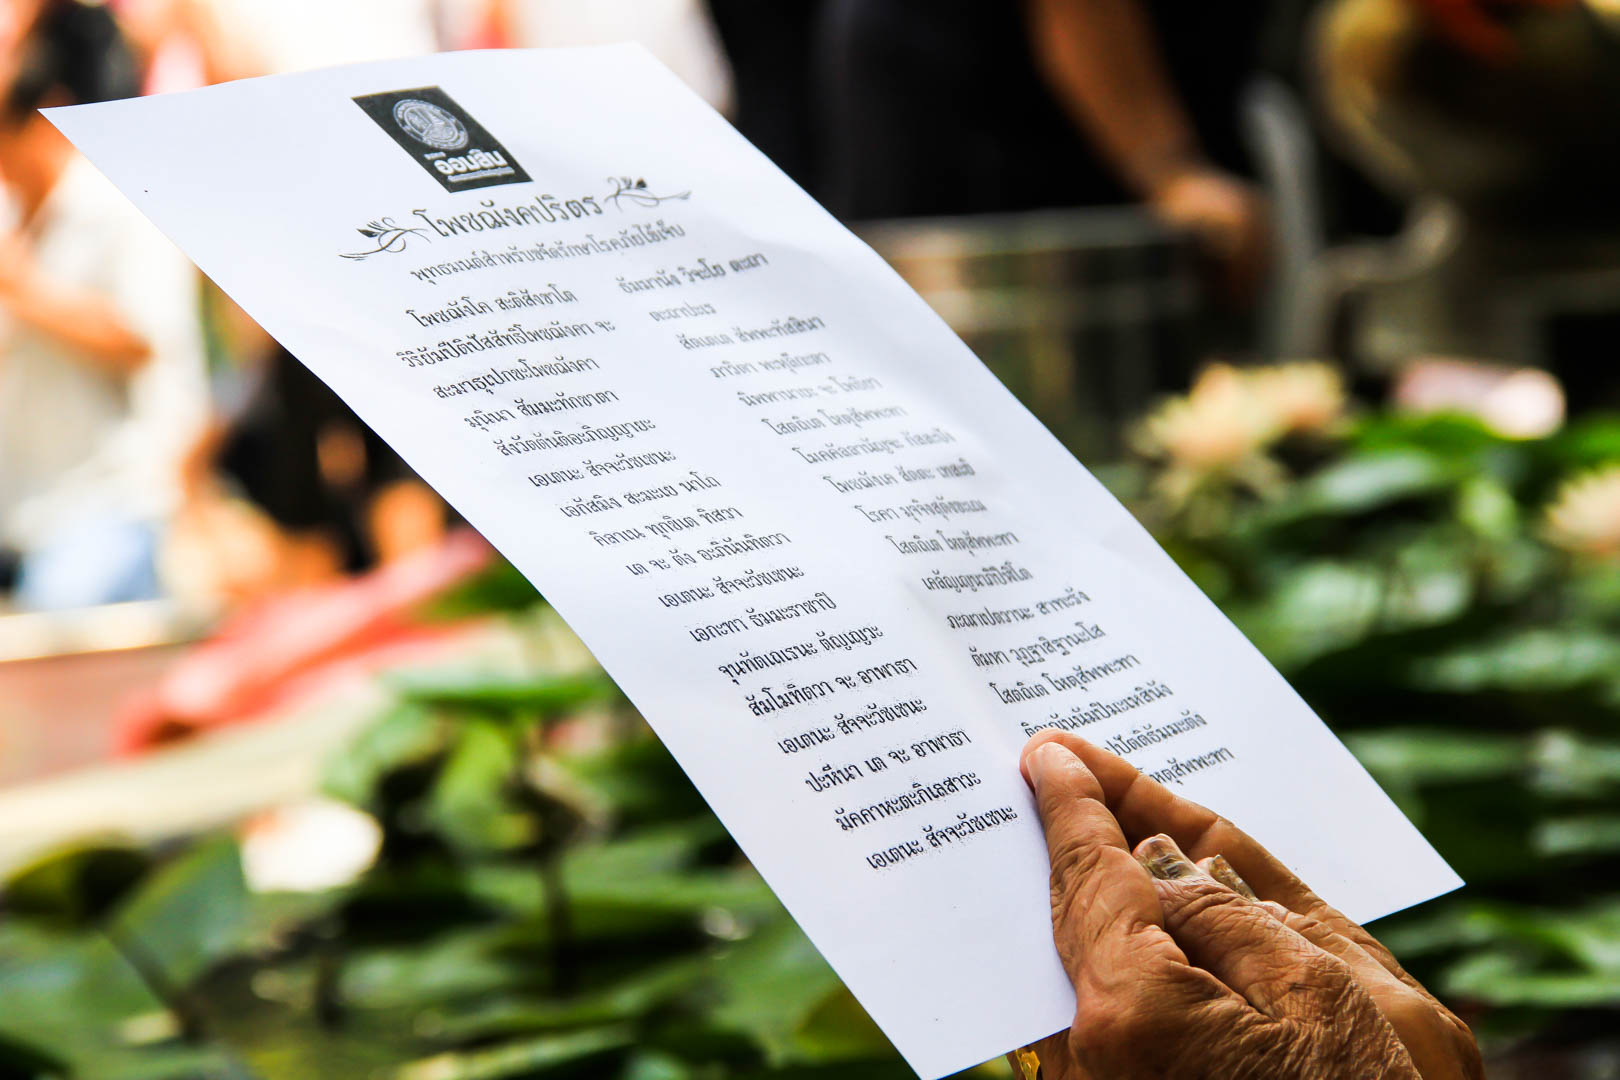 ออมสิน
โพชฌังคปริตร
พุทธมนต์สำหรับขจัดรักษาโรคภัยไข้เจ็บ
โพชฌังโค สะติสังขาโต
วิริยัมปีติปัสสัทธิโพชฌังคา จะ
สะมาธุเปกขะโพชฌังคา
มุนินา สัมมะทักขาตา
สังวัตตันติอะภิญญายะ
เอเตนะ สัจจะวัชเชนะ
เอกัสมิง สะมะเย นาโถ
คิลาเน ทุกขิเต ทิสวา
เต จะ ตัง อะภินันทิตวา
เอเตนะ สัจจะวัชเชนะ
เอกะทา ธัมมะราชาปิ
จุนทัตเถเรนะ ตัญญูวะ
สัมโมทิตวา จะ อาพาธา
เอเตนะ สัจจะวัชเชนะ
ปะหีนา เต จะ อาพาธา
มัคคาหะตะกิเลสาวะ
เอเตนะ สัจจะวัชเชนะ
ธัมมานัง วิจะโย ตะถา
ตะถาปะเร
สัตเตเต สัพพะทัสสินา
ภาวิตา พะหุลีกะตา
นิพพานายะ จะ โพธิยา
โสตถิเต โหตุสัพพะทา
โมคคัลลานัญจะ กัสสะปัง
โพชฌังเค สัตตะ เทสะยิ
โรคา มุจจิงสุตังขะเณ
โสตถิเต โหตุสัพพะทา
เคลัญเญนาภิปีฬิโต
ภะณาเปตวานะ สาทะรัง
ตัมหา วุฏฐาสิฐานะโส
โสตถิเต โหตุสัพพะทา
ติณณันนัมปิมะเหสินัง
ปปัตติธัมมะตัง
โหตุสัพพะทา